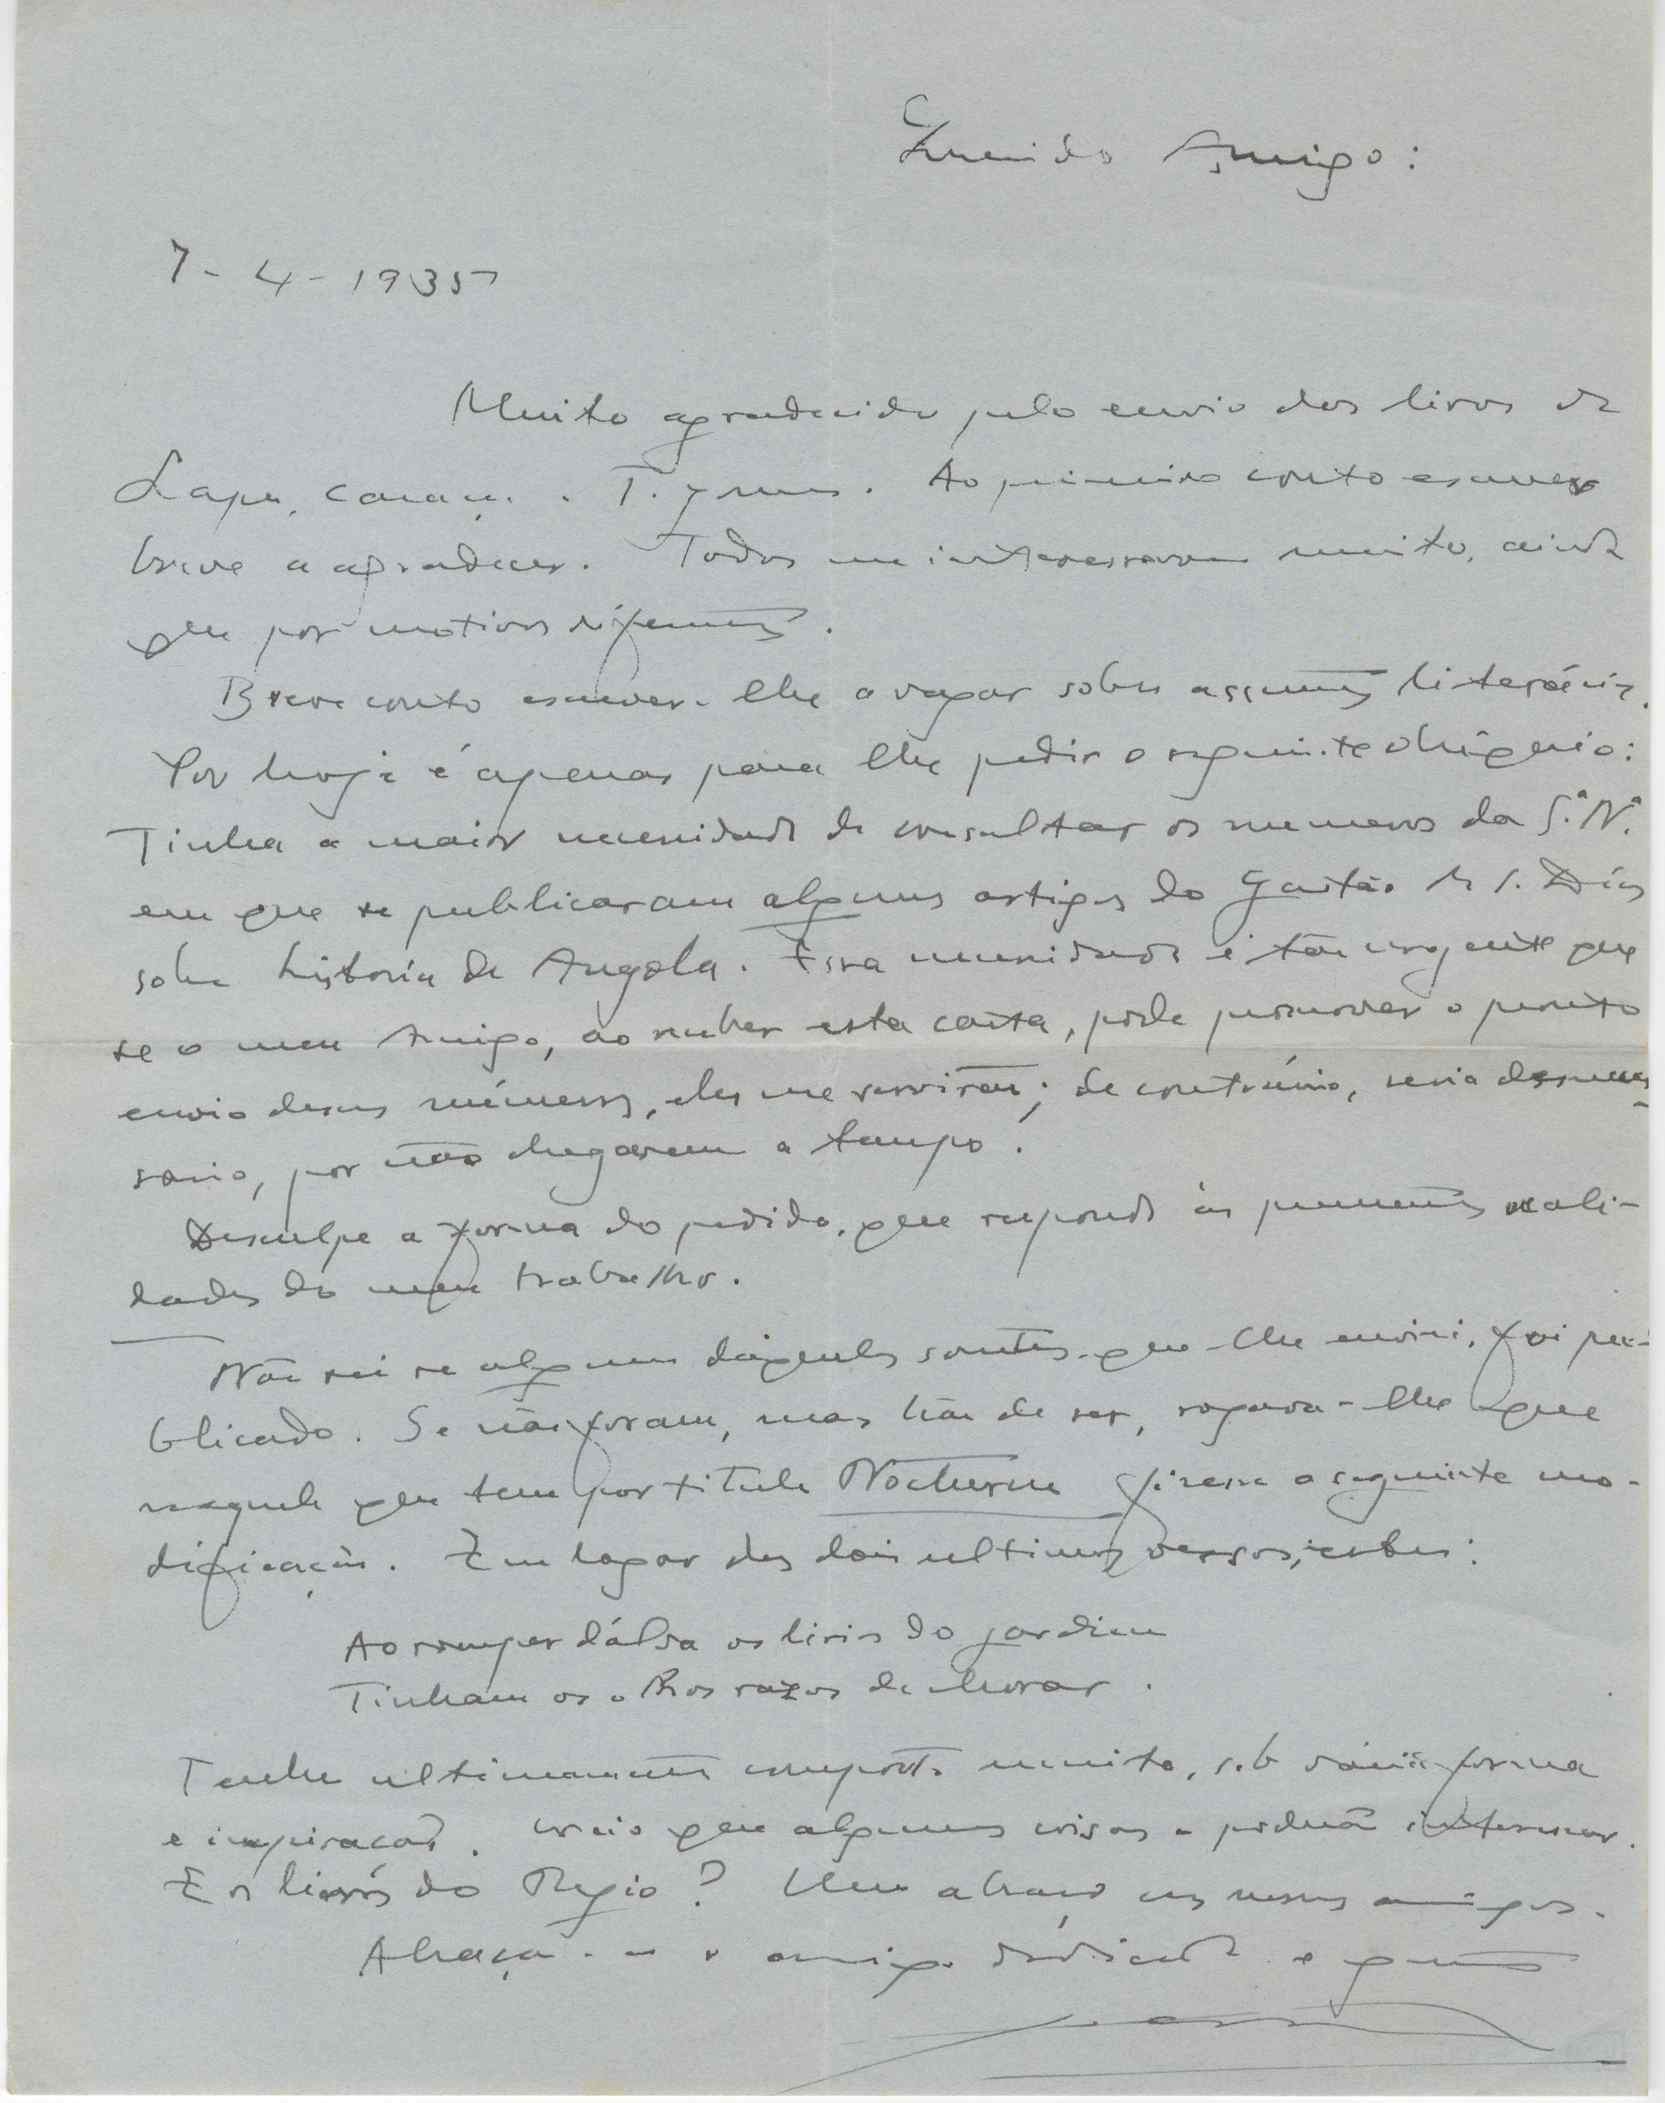 Querido Amigo:
7-4-1935
Muito agradecido pelo envio dos livros de
Lapa, Ao primeiro conto escrever
breve a agradecer. Todos me interessaram muito, ainda
que por motivos diferentes.
Breve conto escrever-lhe a vapor sobre assuntos literários.
Por hoje é apenas para lhe pedir o seguinte obséquio:
Tinha a maior necessidade de consultar os numeros da S.ª N.ª
em que se publicaram alguns artigos do Gastão de S. Dias
sobre história de Angola. Essa necessidade é tão urgente que
se o meu Amigo, ao receber esta carta, pode promover o pronto
envio desses números, eles me servirão; de contrário, seria desneces-
sário, por não chegarem a tempo.
Desculpe a forma do pedido, que responde às prementes reali-
dades do meu trabalho.
Não sei se algum daqueles sonetos, que lhe enviei, foi pu-
blicado. Se não foram, mas hão de ser, rogava-lhe que
naquele que tem por titulo Nocturno fizesse a seguinte mo-
dificação. Em logar dos dois ultimos versos, estes:
Ao romper d'álva os lirios do jardim
Tinham os olhos razos de chorar.
Tenho ultimamente composto muito, sob vária forma
e inspiração. Creio que algumas coisas o poderão interessar.
E os livros do Regio? Um abraço aos nossos amigos.
Abraça-o o amigo dedicado e grato